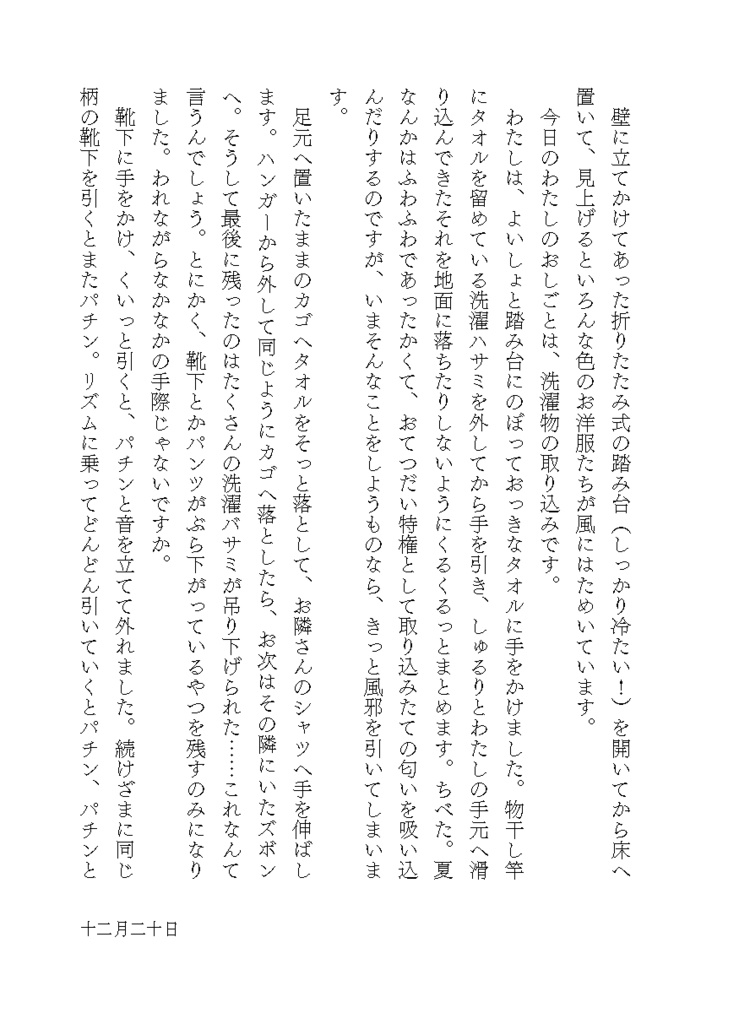 壁に立てかけてあった折りたたみ式の踏み台（しっかり冷たい！）を開いてから床へ
置いて、見上げるといろんな色のお洋服たちが風にはためいています。
　今日のわたしのおしごとは、洗濯物の取り込みです。
　わたしは、よいしょと踏み台にのぼっておっきなタオルに手をかけました。物干し竿
にタオルを留めている洗濯ハサミを外してから手を引き、しゅるりとわたしの手元へ滑
り込んできたそれを地面に落ちたりしないようにくるくるっとまとめます。ちべた。夏
なんかはふわふわであったかくて、おてつだい特権として取り込みたての匂いを吸い込
んだりするのですが、いまそんなことをしようものなら、きっと風邪を引いてしまいま
す。
　足元へ置いたままのカゴへタオルをそっと落として、お隣さんのシャツへ手を伸ばし
ます。ハンガーから外して同じようにカゴへ落としたら、お次はその隣にいたズボン
へ。そうして最後に残ったのはたくさんの洗濯バサミが吊り下げられた……これなんて
言うんでしょう。とにかく、靴下とかパンツがぶら下がっているやつを残すのみになり
ました。われながらなかなかの手際じゃないですか。
　靴下に手をかけ、くいっと引くと、パチンと音を立てて外れました。続けざまに同じ
柄の靴下を引くとまたパチン。リズムに乗ってどんどん引いていくとパチン、パチンと
十二月二十日